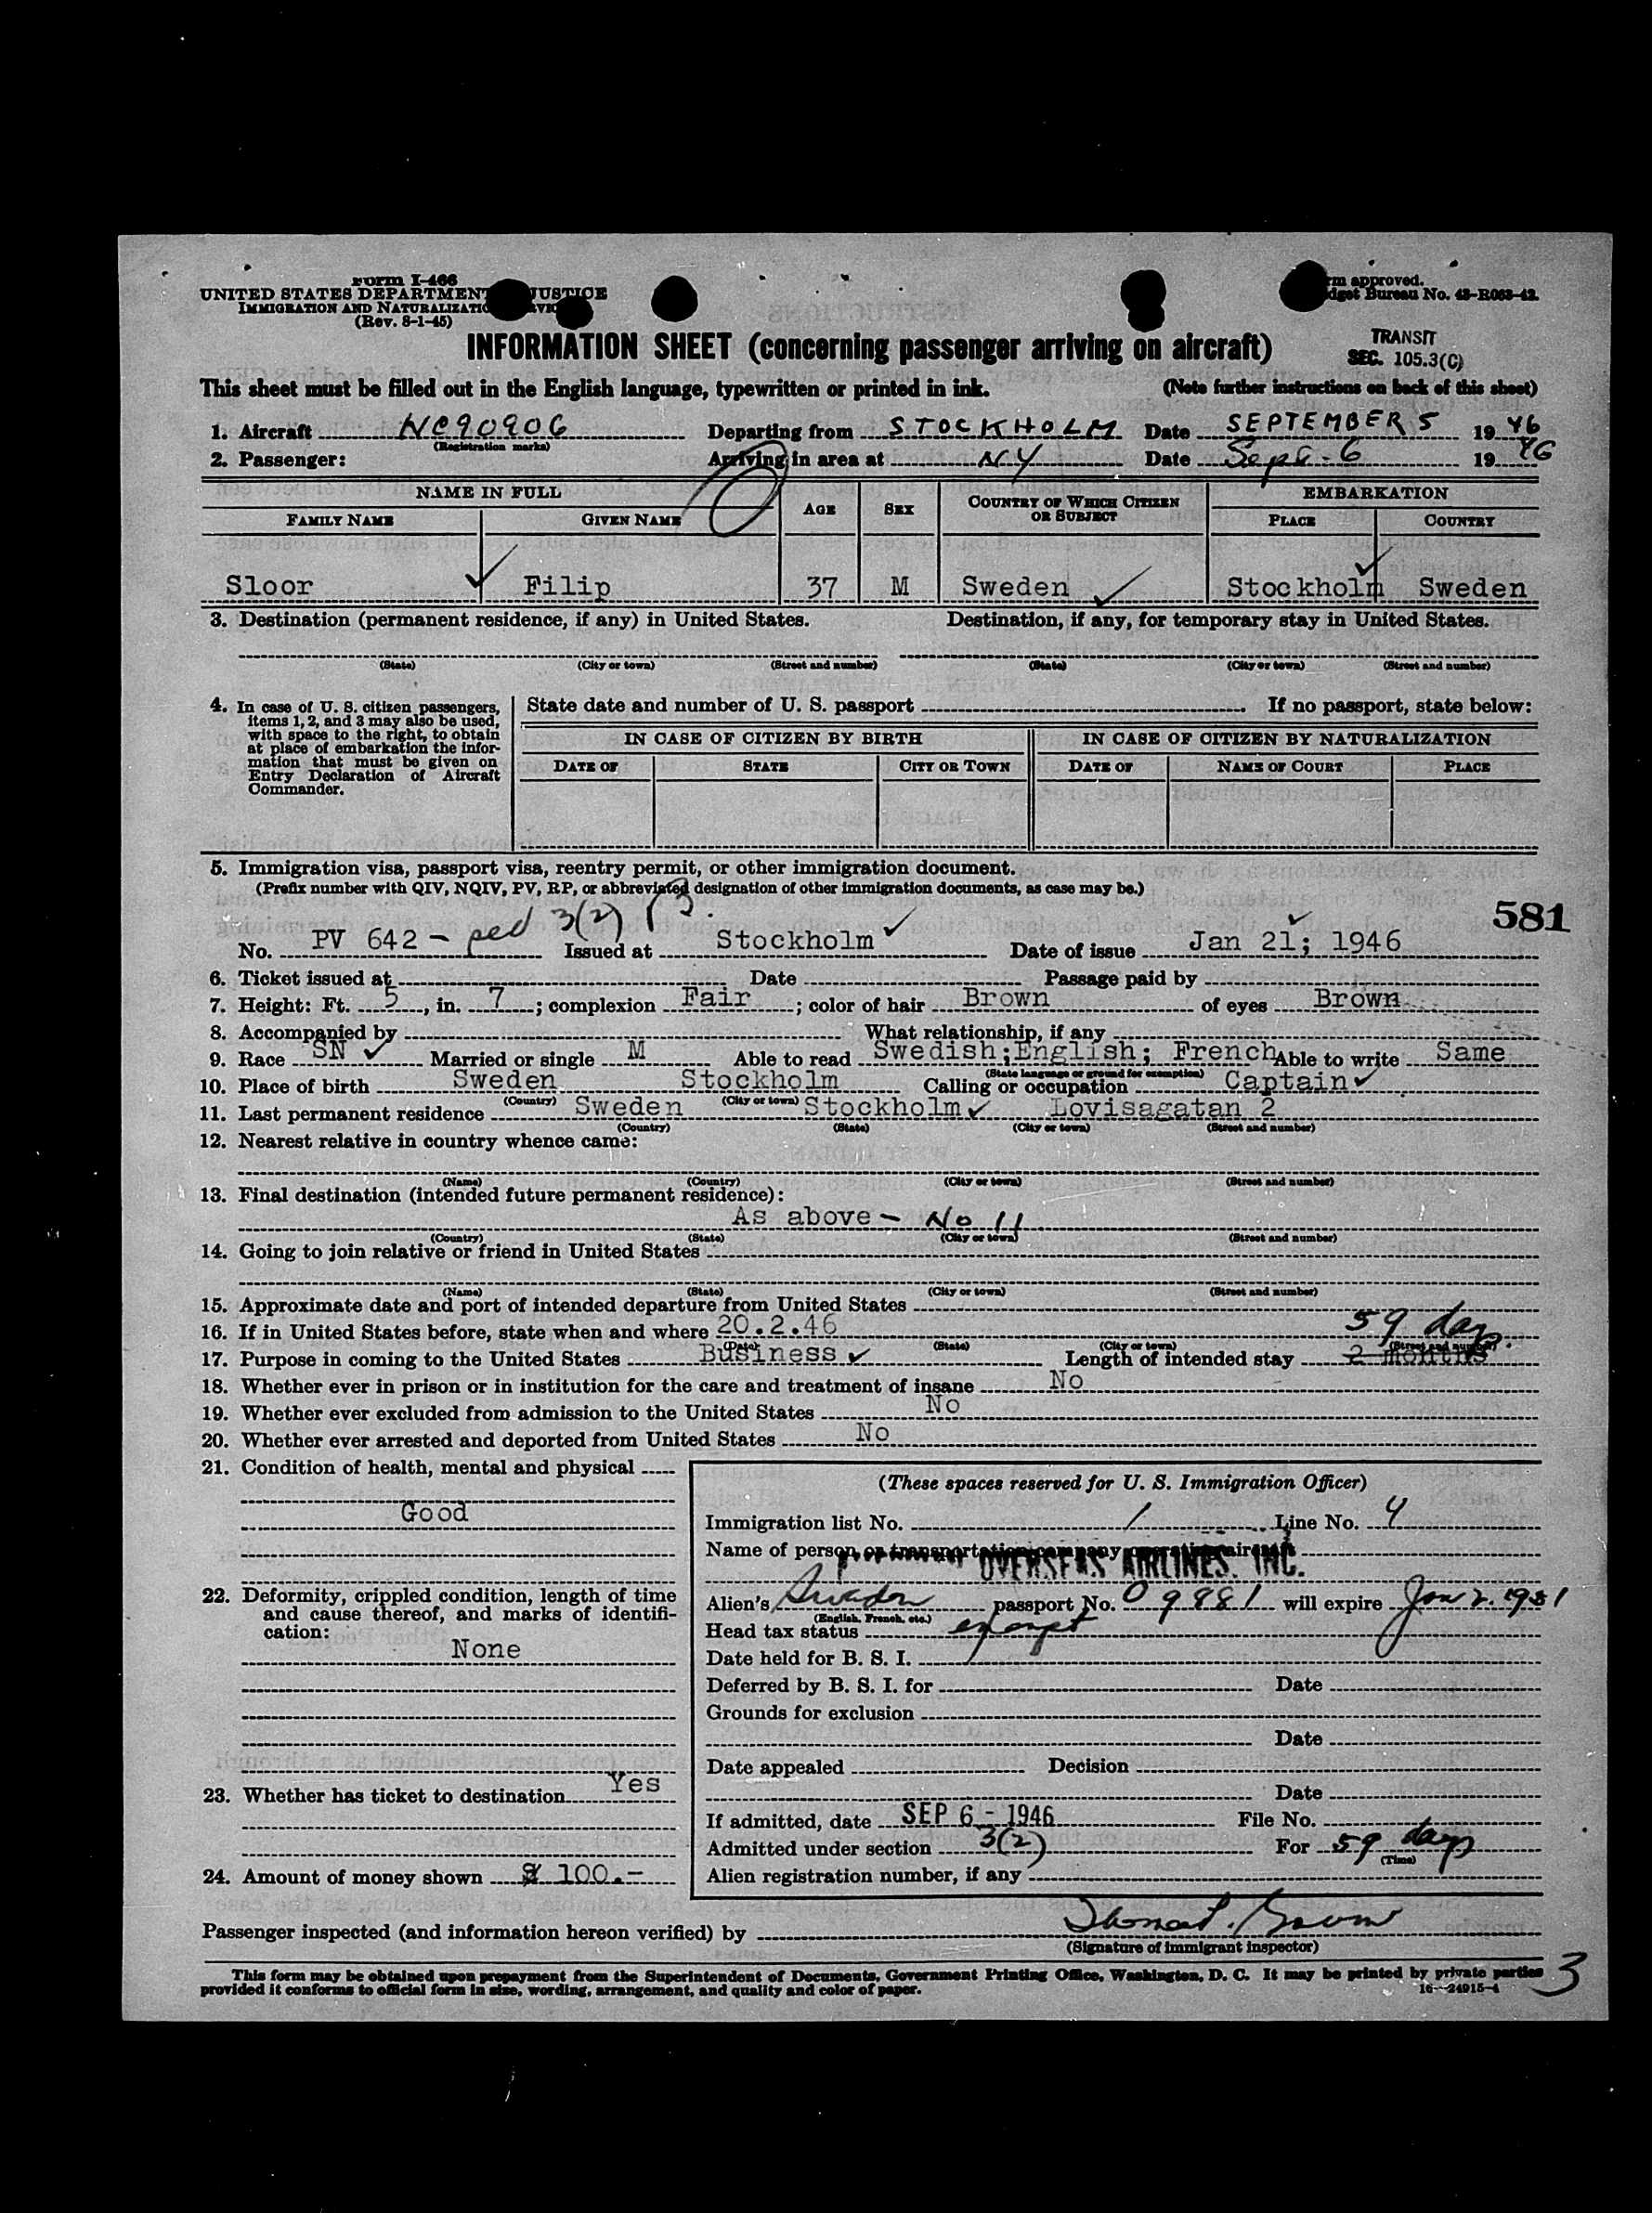 Form I-466
UNITED STATES DEPARTMENT JUSTICE
IMMIGRATION AND NATURALIZATION
(Rev. 8-1-45)
approved.
Bureau No. 43-R063-42.
INFORMATION SHEET (concerning passenger arriving on aircraft)
TRANSIT
SEC. 105.3(C)
This sheet must be filled out in the English language, typewritten or printed in ink. (Note further instructions on back of this sheet)
1. Aircraft NC90906 Departing from STOCKHOLM Date SEPTEMBER 5 19 46
(Registration marks)
2. Passenger: Arriving in area at NY Date Sept. 6 19 46
NAME IN FULL AGE SEX COUNTRY OF WHICH CITIZEN OR SUBJECT EMBARKATION
FAMILY NAME GIVEN NAME PLACE COUNTRY
Sloor Filip 37 M Sweden Stockholm Sweden
3. Destination (permanent residence, if any) in United States. Destination, if any, for temporary stay in United States.
(State) (City or town) (Street and number) (State) (City or town) (Street and number)
4. In case of U. S. citizen passengers, items 1, 2, and 3 may also be used, with space to the right, to obtain at place of embarkation the information that must be given on Entry Declaration of Aircraft Commander.
State date and number of U. S. passport . If no passport, state below:
IN CASE OF CITIZEN BY BIRTH IN CASE OF CITIZEN BY NATURALIZATION
DATE OF STATE CITY OR TOWN DATE OF NAME OF COURT PLACE
5. Immigration visa, passport visa, reentry permit, or other immigration document.
(Prefix number with QIV, NQIV, PV, RP, or abbreviated designation of other immigration documents, as case may be.)
581
No. PV 642 - 3(2) Issued at Stockholm Date of issue Jan 21; 1946
6. Ticket issued at Date Passage paid by
7. Height: Ft. 5, in. 7; complexion Fair; color of hair Brown of eyes Brown
8. Accompanied by What relationship, if any
9. Race SN Married or single M Able to read Swedish;English; French Able to write Same
(State language or ground for exemption)
10. Place of birth Sweden Stockholm Calling or occupation Captain
(Country) (City or town)
11. Last permanent residence Sweden Stockholm Lovisagatan 2
(Country) (State) (City or town) (Street and number)
12. Nearest relative in country whence came:
(Name) (Country) (City or town) (Street and number)
13. Final destination (intended future permanent residence):
As above - No 11
(Country) (State) (City or town) (Street and number)
14. Going to join relative or friend in United States
(Name) (State) (City or town) (Street and number)
15. Approximate date and port of intended departure from United States
16. If in United States before, state when and where 20.2.46
(Date) (State) (City or town) (Street and number)
59 days.
17. Purpose in coming to the United States Business Length of intended stay 2 months
18. Whether ever in prison or in institution for the care and treatment of insane No
19. Whether ever excluded from admission to the United States No
20. Whether ever arrested and deported from United States No
21. Condition of health, mental and physical
Good
22. Deformity, crippled condition, length of time and cause thereof, and marks of identification:
None
23. Whether has ticket to destination Yes
24. Amount of money shown $ 100.-
(These spaces reserved for U. S. Immigration Officer)
Immigration list No. 1 Line No. 4
Name of person or transportation company operating aircraft
OVERSEAS AIRLINES, INC.
Alien's Sweden passport No. 09881 will expire Jan 2. 1951
(English, French, etc.)
Head tax status exempt
Date held for B. S. I.
Deferred by B. S. I. for Date
Grounds for exclusion
Date
Date appealed Decision
Date
If admitted, date SEP 6 - 1946 File No.
Admitted under section 3(2) For 59 days
(Time)
Alien registration number, if any
Passenger inspected (and information hereon verified) by
(Signature of immigrant inspector)
This form may be obtained upon prepayment from the Superintendent of Documents, Government Printing Office, Washington, D. C. It may be printed by private parties
provided it conforms to official form in size, wording, arrangement, and quality and color of paper.
16-24915-4
3